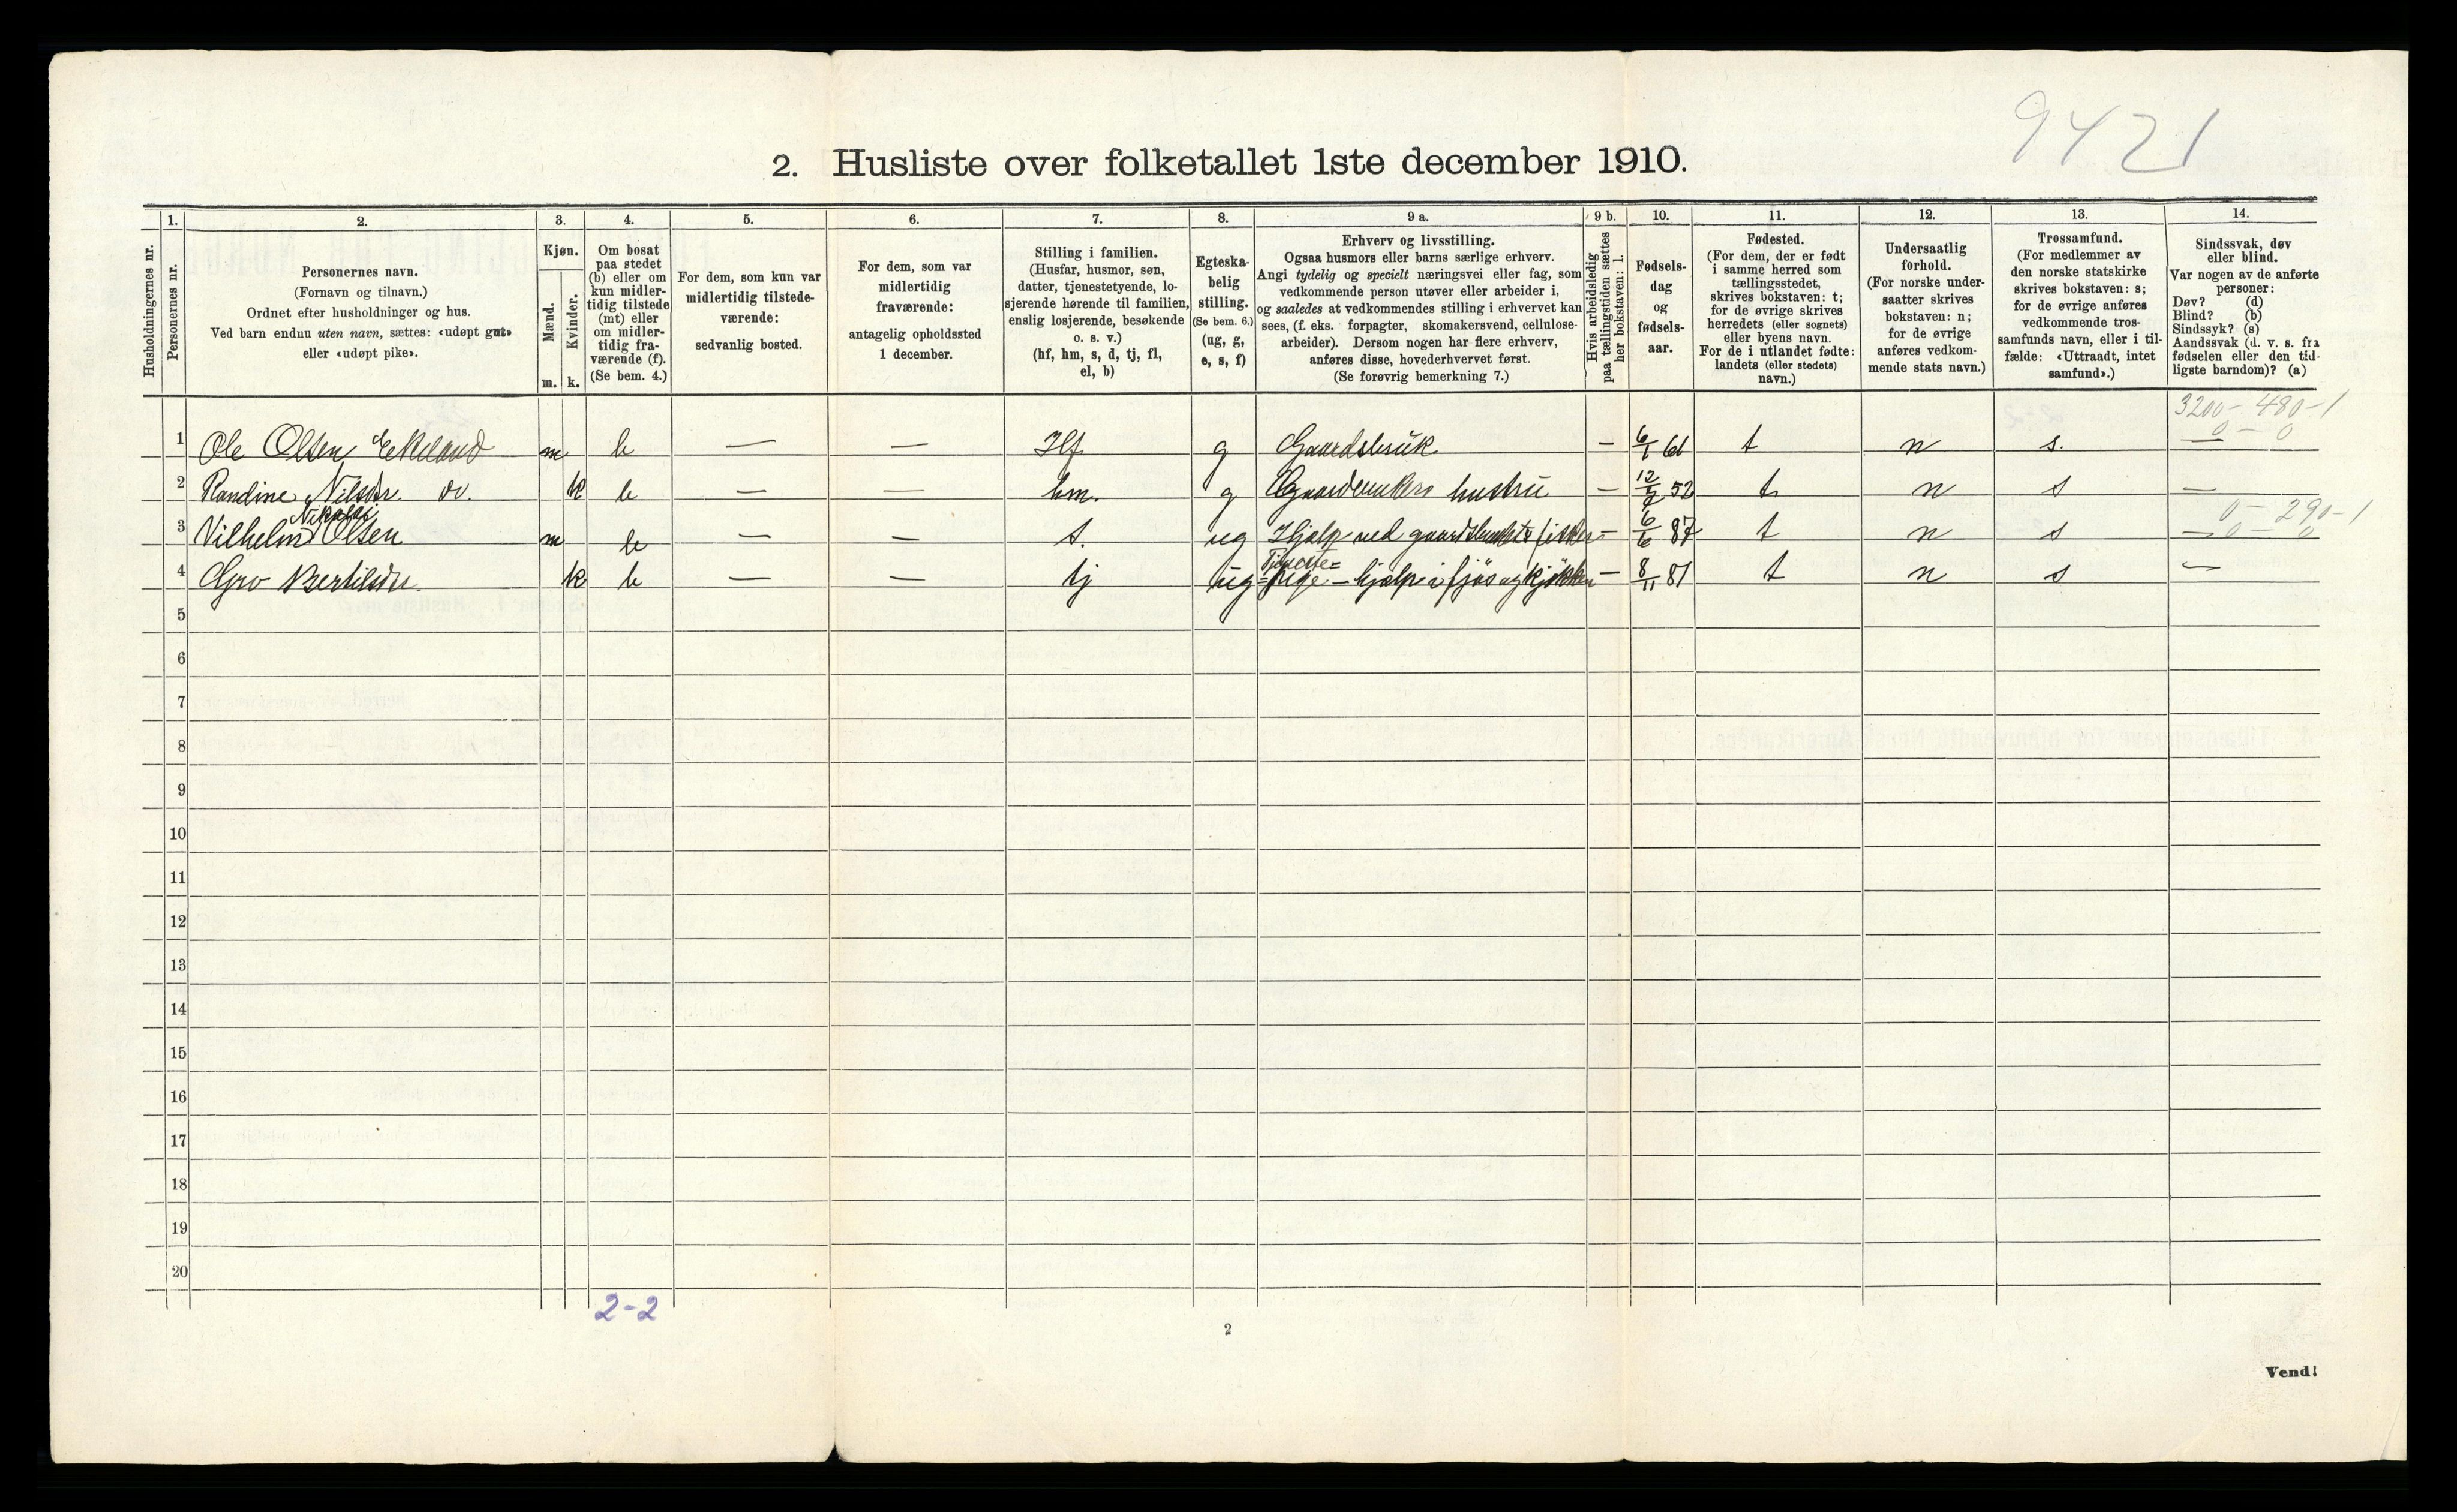 9421
2. Husliste over folketallet 1ste december 1910.
Husholdningernes nr.
1. Personernes nr.
2. Personernes navn. (Fornavn og tilnavn.) Ordnet efter husholdninger og hus. Ved barn endnu uten navn, sættes: «udøpt gut» eller «udøpt pike».
3. Kjøn. Mænd. m. Kvinder. k.
4. Om bosat paa stedet (b) eller om kun midlertidig tilstede (mt) eller om midlertidig fraværende (f). (Se bem. 4.)
5. For dem, som kun var midlertidig tilstedeværende: sedvanlig bosted.
6. For dem, som var midlertidig fraværende: antagelig opholdssted 1 december.
7. Stilling i familien. (Husfar, husmor, søn, datter, tjenestetyende, losjerende hørende til familien, enslig losjerende, besøkende o. s. v.) (hf, hm, s, d, tj, fl, el, b)
8. Egteskabelig stilling. (Se bem. 6.) (ug, g, e, s, f)
9 a. Erhverv og livsstilling. Ogsaa husmors eller barns særlige erhverv. Angi tydelig og specielt næringsvei eller fag, som vedkommende person utøver eller arbeider i, og saaledes at vedkommendes stilling i erhvervet kan sees, (f. eks. forpagter, skomakersvend, cellulosearbeider). Dersom nogen har flere erhverv, anføres disse, hovederhvervet først. (Se forøvrig bemerkning 7.)
9 b. Hvis arbeidsledig paa tællingstiden sættes her bokstaven: l.
10. Fødselsdag og fødselsaar.
11. Fødested. (For dem, der er født i samme herred som tællingsstedet, skrives bokstaven: t; for de øvrige skrives herredets (eller sognets) eller byens navn. For de i utlandet fødte: landets (eller stedets) navn.)
12. Undersaatlig forhold. (For norske undersaatter skrives bokstaven: n; for de øvrige anføres vedkommende stats navn.)
13. Trossamfund. (For medlemmer av den norske statskirke skrives bokstaven: s; for de øvrige anføres vedkommende trossamfunds navn, eller i tilfælde: «Uttraadt, intet samfund».)
14. Sindssvak, døv eller blind. Var nogen av de anførte personer: Døv? (d) Blind? (b) Sindssyk? (s) Aandssvak (d. v. s. fra fødselen eller den tidligste barndom)? (a)
3200 - 480 - 1
0 - 0
1 Ole Olsen Ekeland m b — — Hf g Gaardsbruk — 6/1 61 t n s. —
2 Randine Nilsdr. do. k b — — hm. g Gaardbrukers hustru — 12/2 52 t n s —
Nikolai
0 - 290 - 1
3 Vilhelm Olsen m b — — s. ug Hjælp ved gaardsbruket & fisker — 6/6 87 t n s — 0 - 0
Tjeneste=
4 Gro Bertilsdr. k b — — tj ug =pige - hjælper i fjøs og kjøkken — 8/11 81 t n s —
5
6
7
8
9
10
11
12
13
14
15
16
17
18
19
20
2-2
2
Vend!